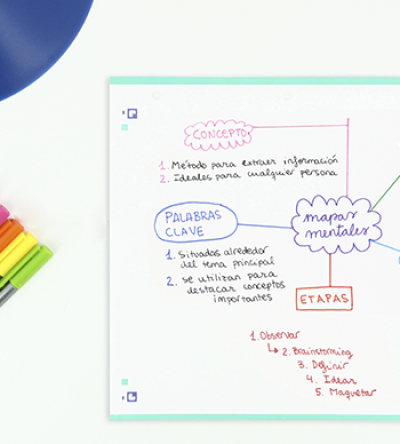 CONCEPTO
1. Método para extraer información
2. Ideales para cualquier persona
PALABRAS
CLAVE
mapas
mentales
1. Situadas alrededor
del tema principal
2. se utilizan para
destacar conceptos
importantes
ETAPAS
1. Observar
2. Brainstorming
3. Definir
4. Idear
5. Maquetar